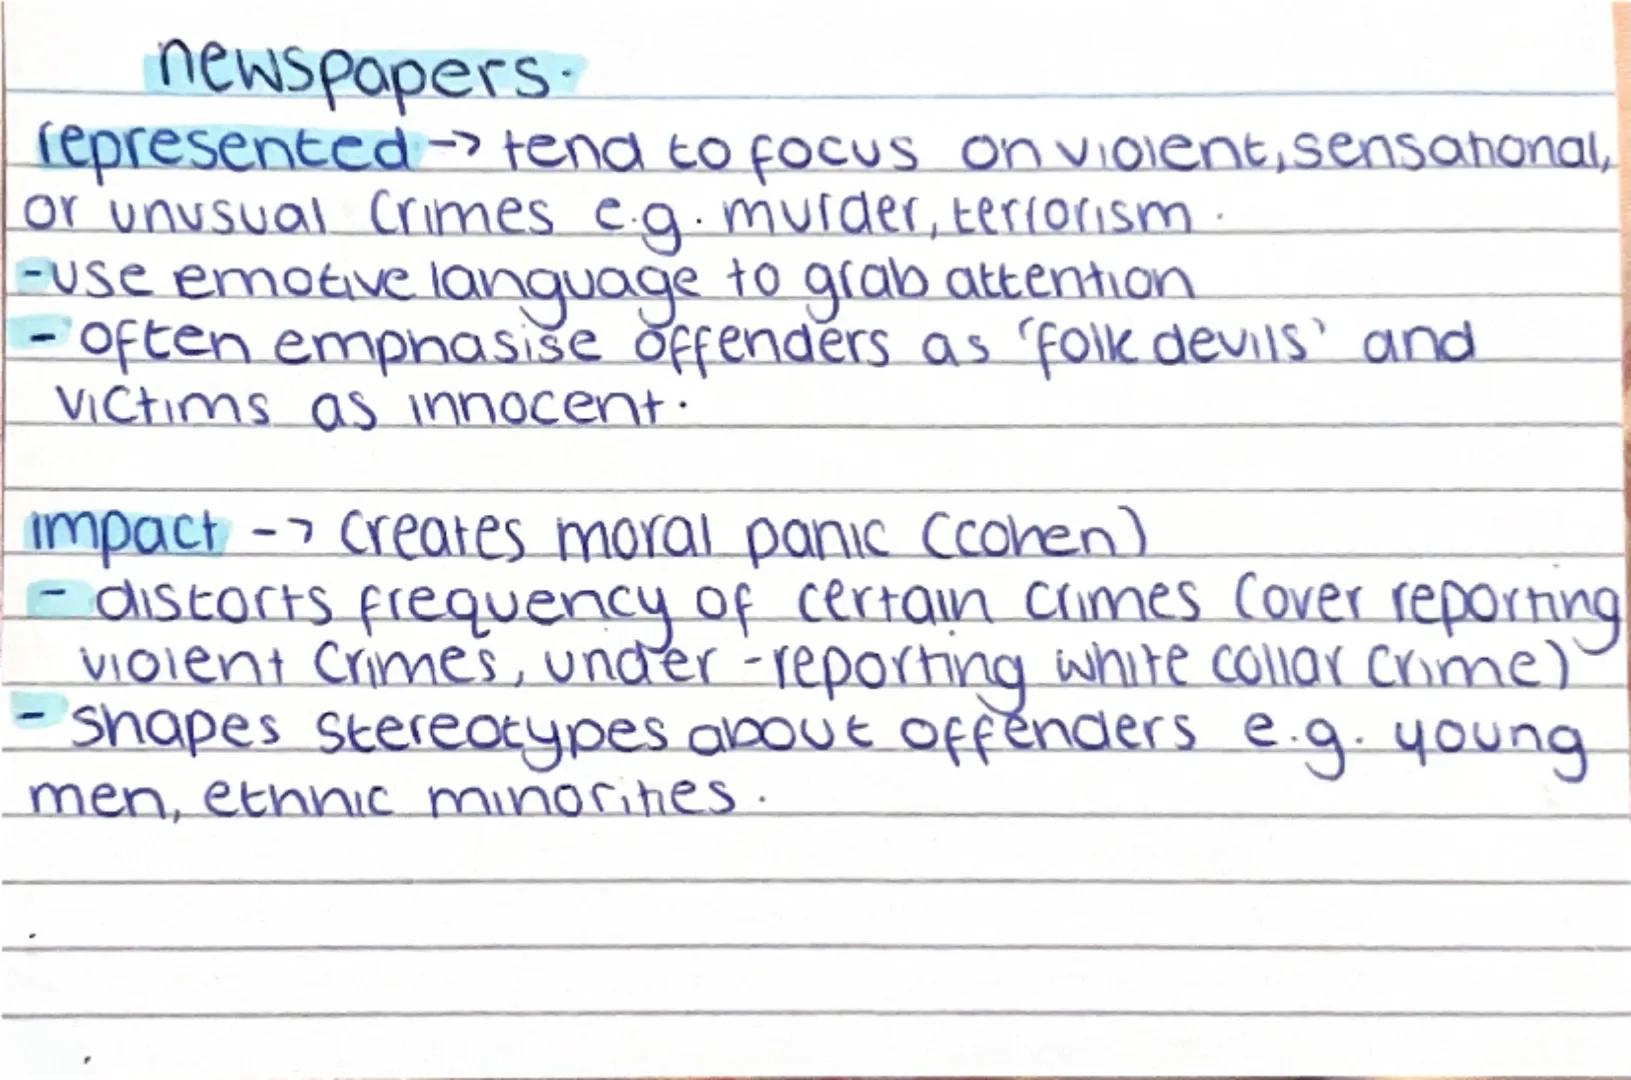 newspapers.
represented -> tend to focus on violent, sensational,
or unusual crimes e.g. murder, terrorism.
-use emotive language to grab attention
- often emphasise offenders as 'folk devils' and
victims as innocent.
impact -> creates moral panic (cohen)
- distorts frequency of certain crimes (over reporting
violent crimes, under-reporting white collar crime)
- shapes stereotypes about offenders e.g. young
men, ethnic minorities.